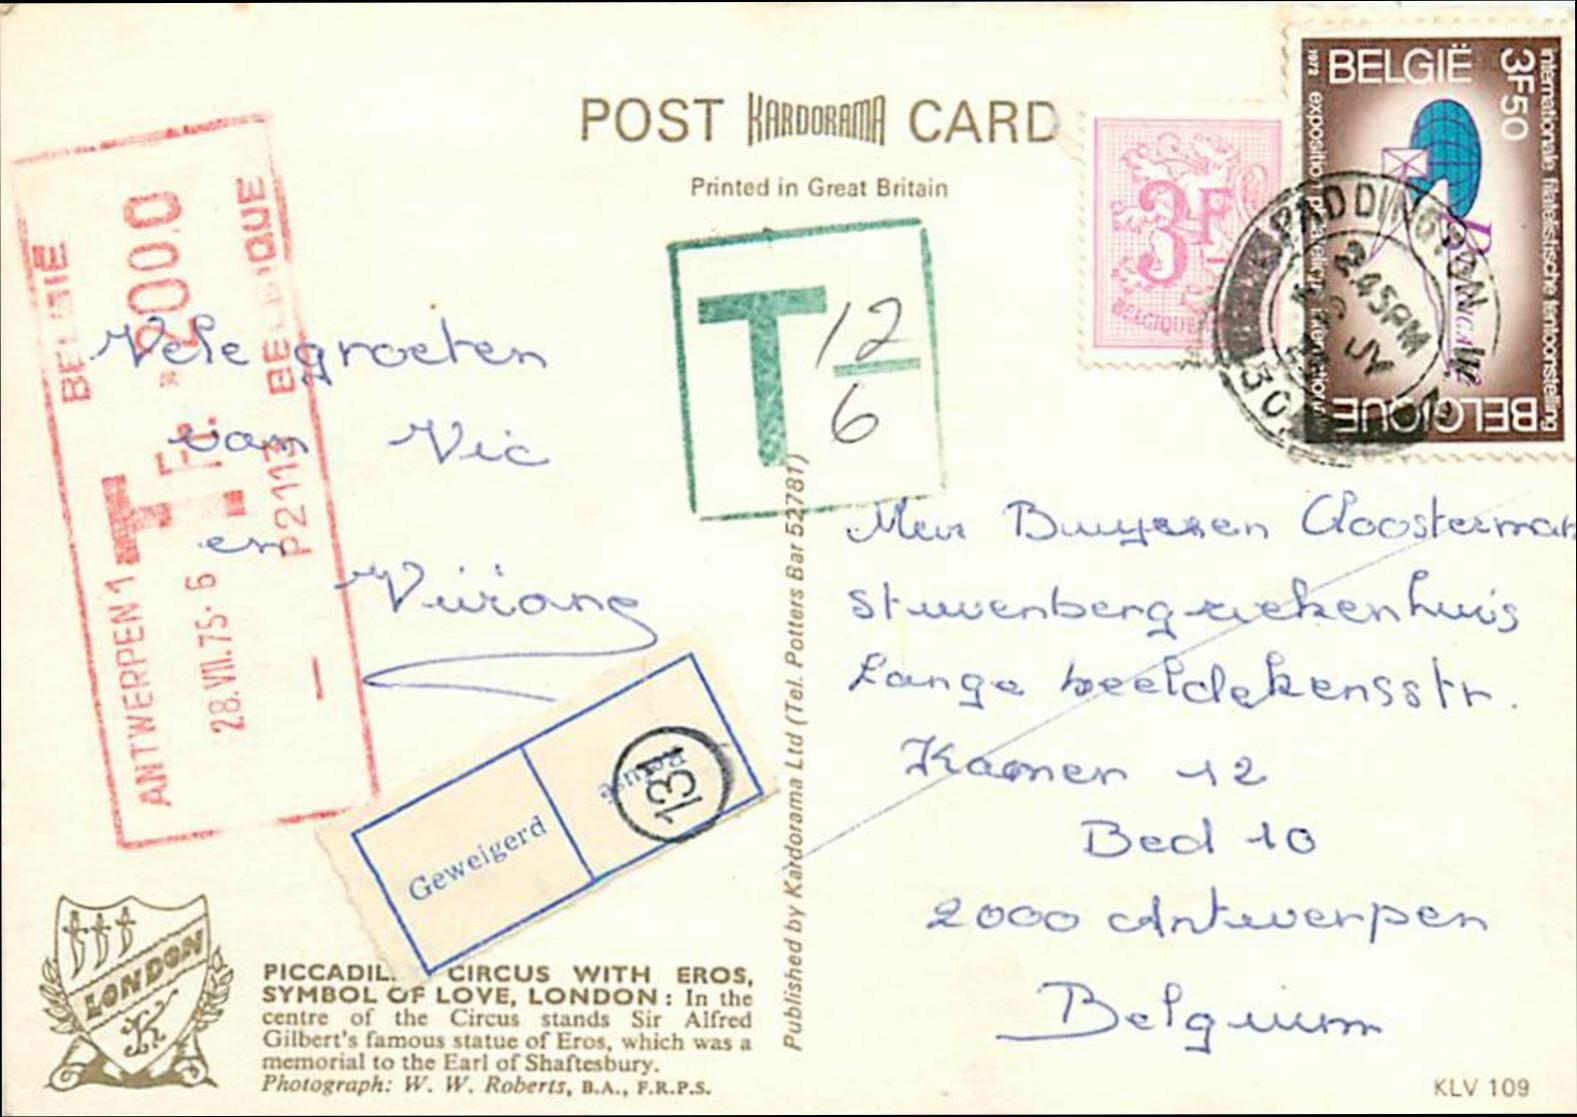 POST KARDORAMA CARD
Printed in Great Britain
BELGIË
3F50
internationale filatelistische tentoonstelling
1972
BELGICA 72
BELGIQUE
3F
BELGIQUE
PADDINGTON
2.45PM
JY
T 12
6
BELGIË
* 2000
BELGIQUE
T Fr.
P2113
ANTWERPEN 1
28.VII.75-6
Vele groeten
van Vic
en
Mevr Buyesen Cloosterman
Stuivenbergziekenhuis
Lange beeldekensstr.
Kamer 12
Bed 10
2000 Antwerpen
Belgium
Geweigerd
Refusé
131
Published by Kardorama Ltd (Tel. Potters Bar 52781)
LONDON
K
PICCADIL CIRCUS WITH EROS,
SYMBOL OF LOVE, LONDON : In the
centre of the Circus stands Sir Alfred
Gilbert's famous statue of Eros, which was a
memorial to the Earl of Shaftesbury.
Photograph: W. W. Roberts, B.A., F.R.P.S.
KLV 109